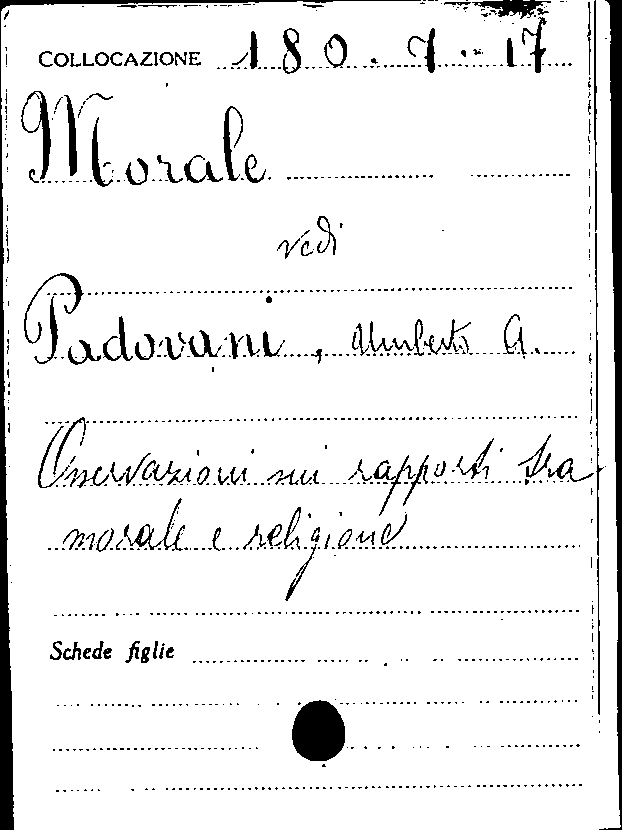 COLLOCAZIONE 180.7.-17
Morale
vedi
Padovani, Umberto A.
Osservazioni sui rapporti tra
morale e religione
Schede figlie